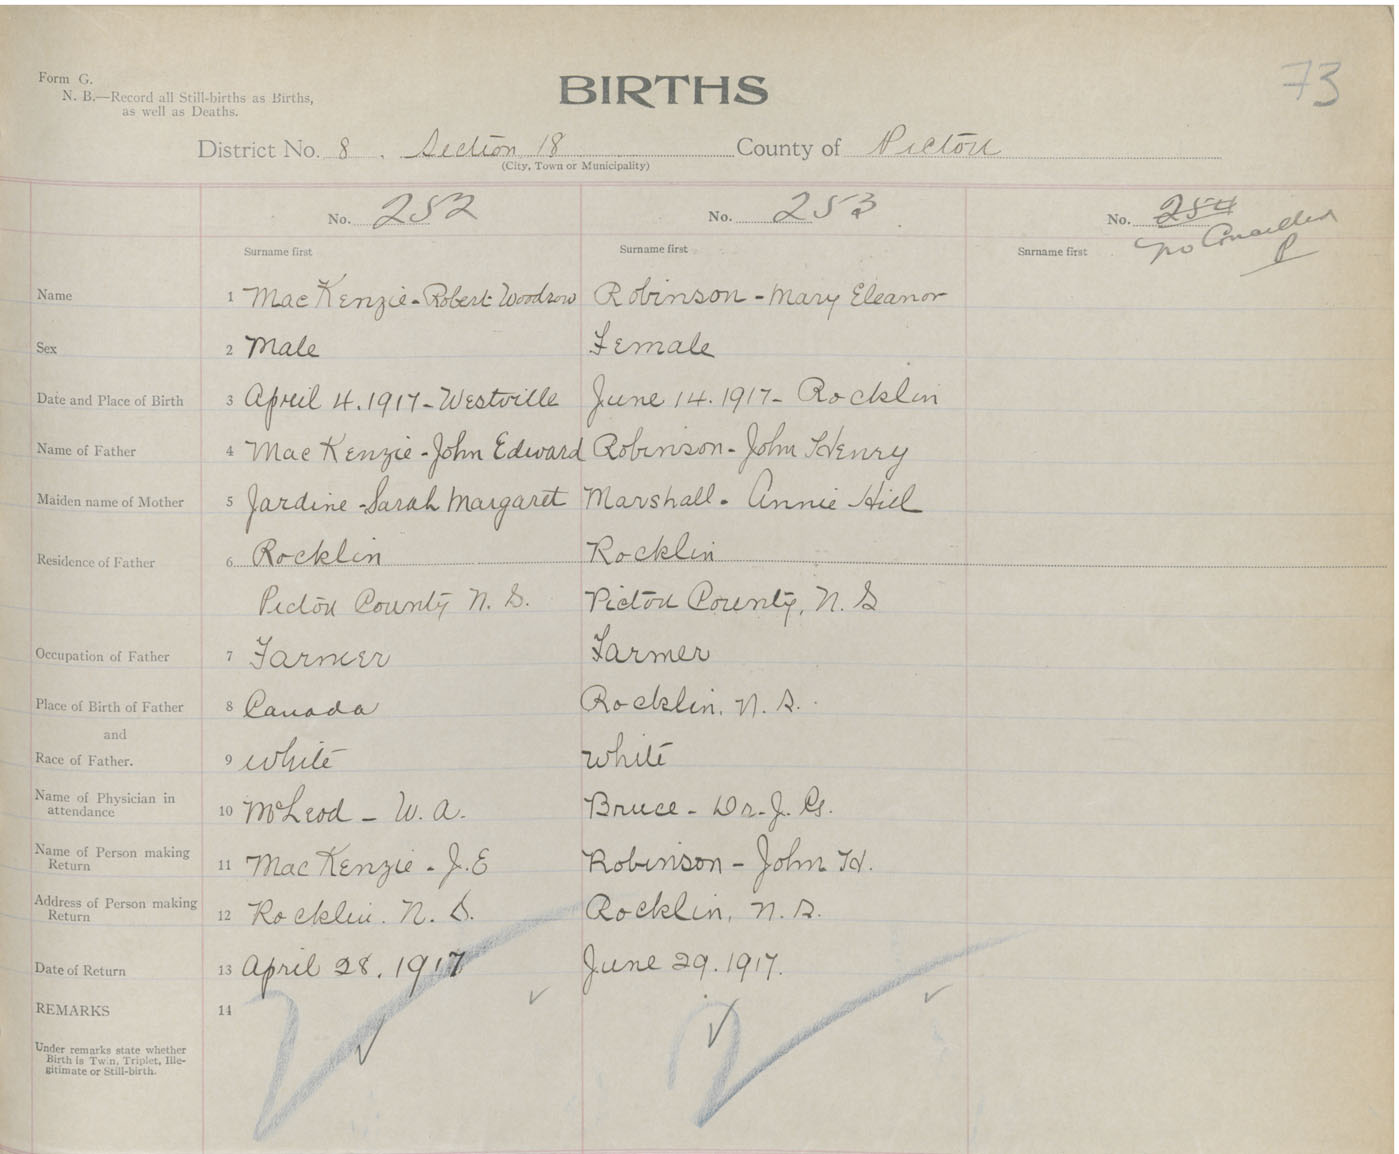 73
Form G.
N. B.—Record all Still-births as Births,
as well as Deaths.
BIRTHS
District No. 8. Section 18 County of Pictou
(City, Town or Municipality)
No. 252 No. 253 No. 254
no Cancelled
P
Surname first Surname first Surname first
Name 1 MacKenzie - Robert Woodrow Robinson - Mary Eleanor
Sex 2 Male Female
Date and Place of Birth 3 April 4. 1917 - Westville June 14. 1917 - Rocklin
Name of Father 4 MacKenzie - John Edward Robinson - John Henry
Maiden name of Mother 5 Jardine - Sarah Margaret Marshall - Annie Hill
Residence of Father 6 Rocklin Rocklin
Pictou County N. S. Pictou County, N. S
Occupation of Father 7 Farmer Farmer
Place of Birth of Father 8 Canada Rocklin, N. S.
and
Race of Father. 9 white white
Name of Physician in
attendance 10 McLeod - W. A. Bruce - Dr. J. G.
Name of Person making
Return 11 MacKenzie - J. E Robinson - John H.
Address of Person making
Return 12 Rocklin. N. S. Rocklin, N. S.
Date of Return 13 April 28. 1917 June 29. 1917.
REMARKS 14
Under remarks state whether
Birth is Twin, Triplet, Ille-
gitimate or Still-birth.